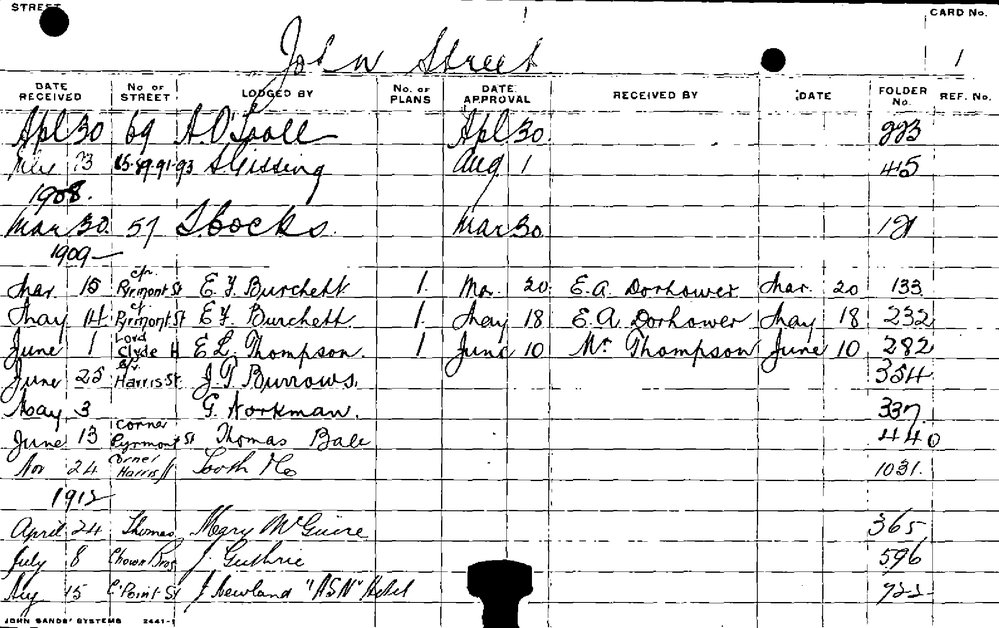 STREET
CARD No.
John Street
1
DATE RECEIVED No OF STREET LODGED BY No. OF PLANS DATE APPROVAL RECEIVED BY DATE FOLDER No. REF. No.
Apl 30 69 A. O'Toole Apl 30 223
23 85-89-91-93 S Gissing Aug 1 45
1908.
Mar 30 57 Mar 30 121
1909
Mar. 15 c/r Pyrmont St E. F. Burchett 1. Mar. 20 E.A. Dorhower Mar. 20 133
May 14 cr Pyrmont St E F Burchett 1. May 18 E. A Dorhower May 18 232
June 1 Lord Clyde H E L Thompson 1 June 10 Mr Thompson June 10 282
June 25 Harris St. J. T Burrows. 354
May 3 G. Workman. 337
June 13 corner Pyrmont St Thomas Bale 440
Nov 24 Corner Harris St Tooth & Co 1031.
1912
April 24 Thomas Mary McGuire 365
July 8 Chown Bros J. Guthrie 596
Aug 15 Point St J Newland "ASN" Hotel 722
JOHN SANDS' SYSTEMS 2441-1